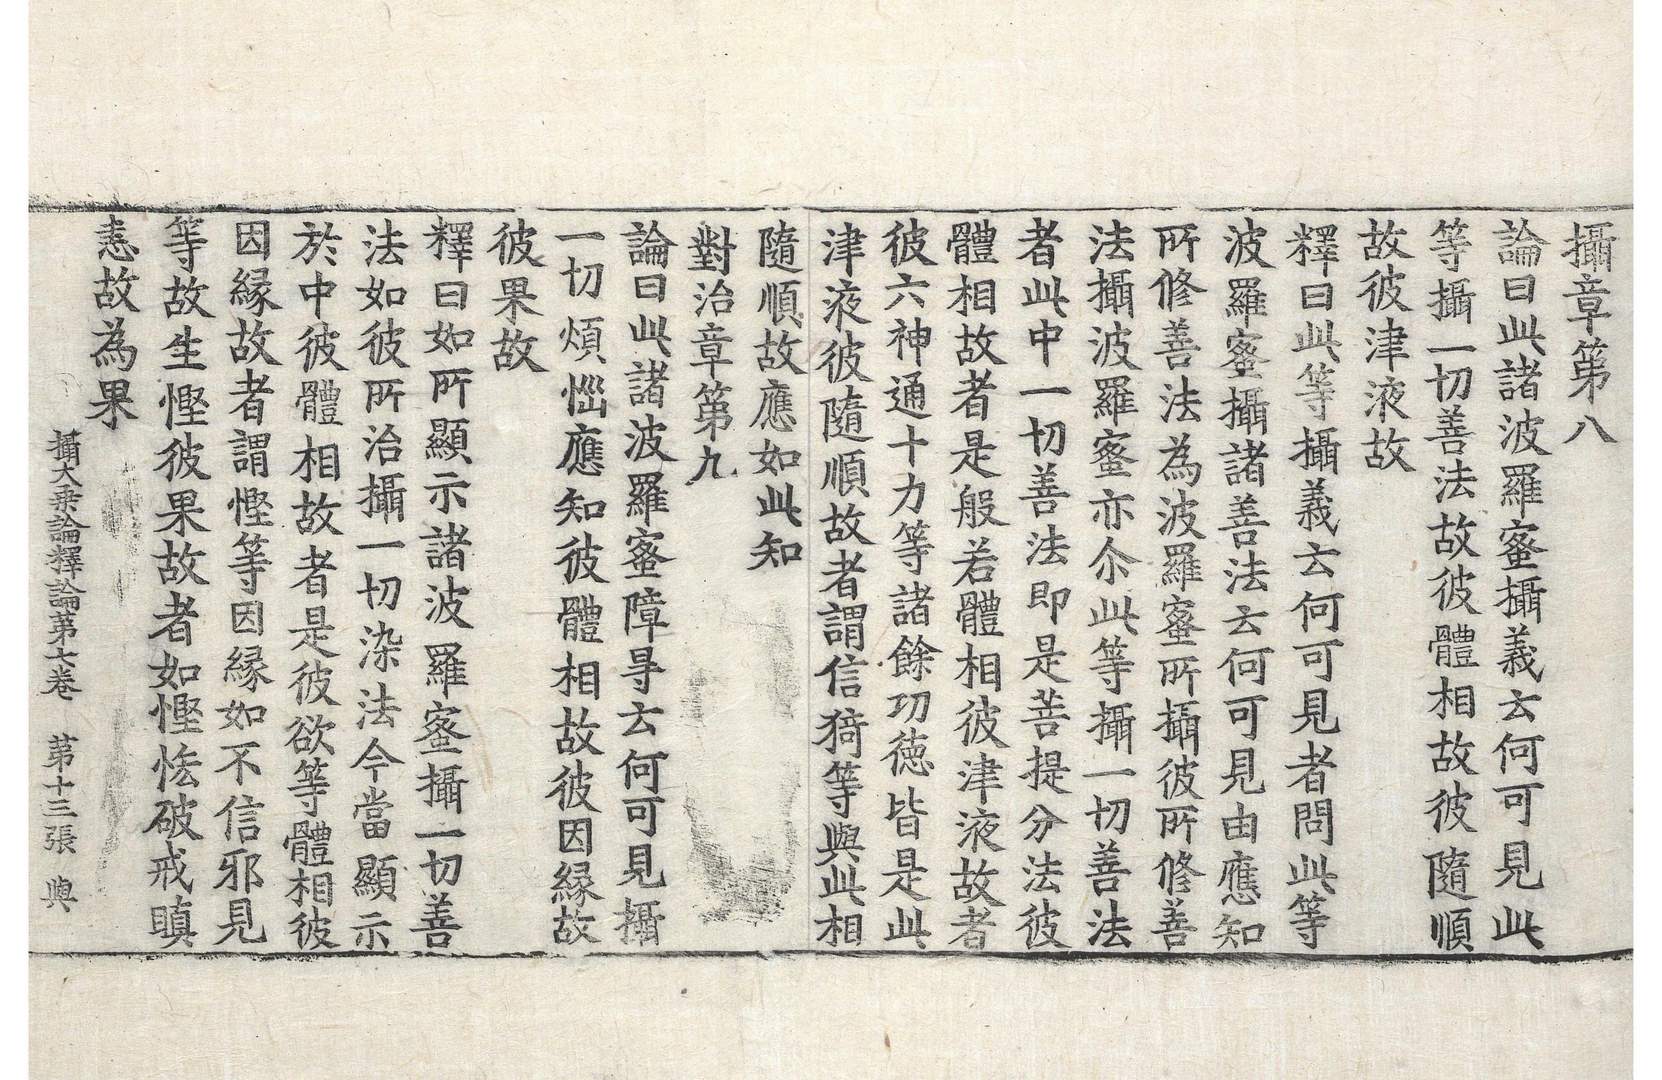 攝章第八
論曰此諸波羅蜜攝義云何可見此
等攝一切善法故彼體相故彼隨順
故彼津液故
釋曰此等攝義云何可見者問此等
波羅蜜攝諸善法云何可見由應知
所修善法為波羅蜜所攝彼所修善
法攝波羅蜜亦尒此等攝一切善法
者此中一切善法即是菩提分法彼
體相故者是般若體相彼津液故者
彼六神通十力等諸餘功德皆是此
津液彼隨順故者謂信猗等與此相
隨順故應如此知
對治章第九
論曰此諸波羅蜜障㝵云何可見攝
一切煩惱應知彼體相故彼因緣故
彼果故
釋曰如所顯示諸波羅蜜攝一切善
法如彼所治攝一切染法今當顯示
於中彼體相故者是彼欲等體相彼
因緣故者謂慳等因緣如不信邪見
等故生慳彼果故者如慳恡破戒瞋
恚故為果
攝大乘論釋論第七卷 第十三張 與